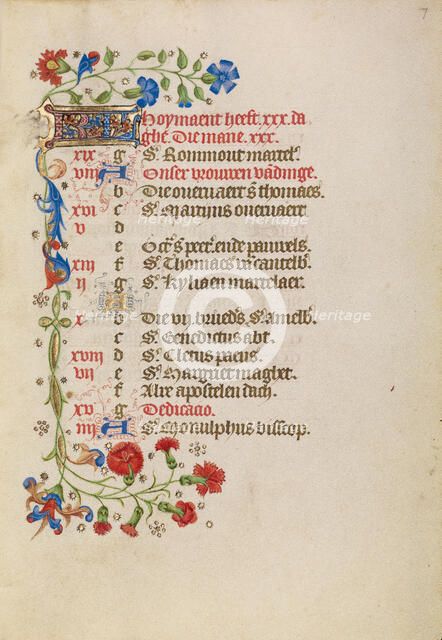 7
Hoymaent heeft .xxx. da
ghē. Die mane .xxx.
xix g Sᵗ. Rommout martel.
viii A Onser vrouwen vadinge.
b Die ouervaert s̄ thomaes.
xvi c Sᵗ. Martijns ouervaert
v d
e Oct̄. s̄ peet. ende pauwels.
xiii f Sᵗ. Thomaes vā cantelb.
ii g Sᵗ. Kyliaen martelaer.
x b Die vii brued's. Sᵗ. Amelb.
c Sᵗ. Benedictus abt.
xviii d Sᵗ. Cletus paeus.
vii e Sᵗ. Margriet maghet.
f Alre apostelen dach.
xv g Dedicacio.
iiii A Sᵗ. Monulphus bisscop.
Heritage
Heritage
Heritage